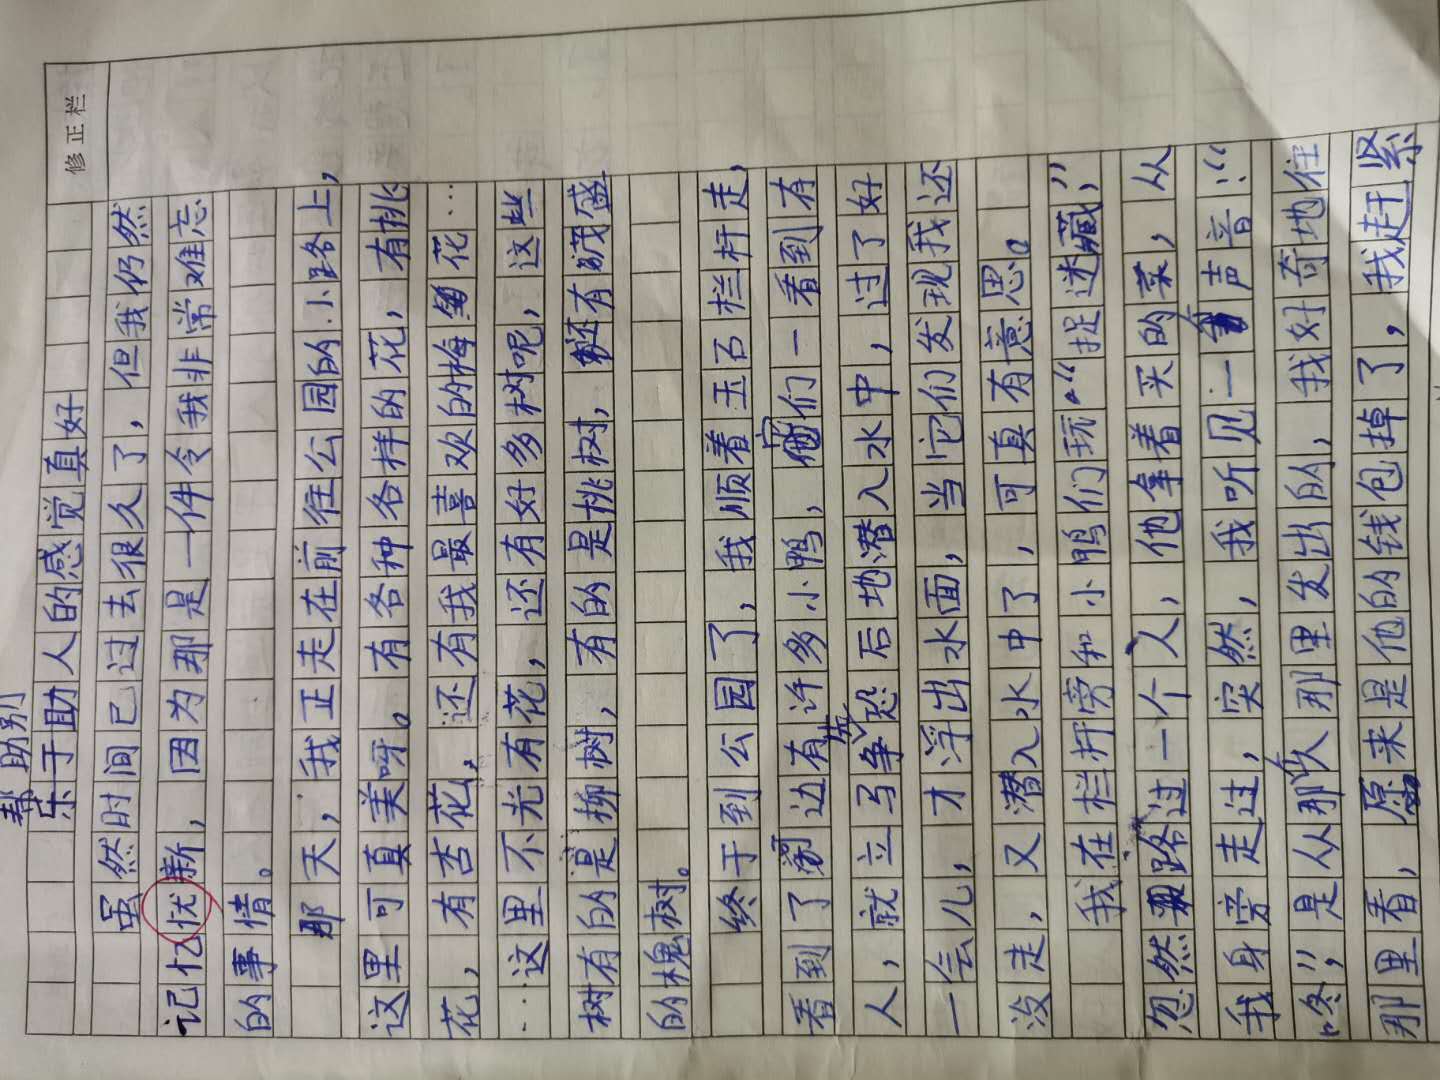 修正栏
帮助别
乐于助人的感觉真好
虽然时间已过去很久了，但我仍然
记忆忧新，因为那是一件令我非常难忘
的事情。
那天，我正走在前往公园的小路上，
这里可真美呀。有各种各样的花，有桃
花，有杏花，还有我最喜欢的梅花…
…这里不光有花，还有好多树呢，这些
树有的是柳树，有的是桃树，还有茂盛
的槐树。
终于到公园了，我顺着玉石栏杆走，
看到了湖边有许多小鸭，它们一看到有
人，就立马争先恐后地潜入水中，过了好
一会儿，才浮出水面，当它们发现我还
没走，又潜入水中了，可真有意思。
我在栏杆旁和小鸭们玩“捉迷藏”，
忽然路过一个人，他拿着买的菜，从
我身旁走过，突然，我听见一声音：“
咚”，是从那人那里发出的，我好奇地往
那里看，原来是他的钱包掉了，我赶紧